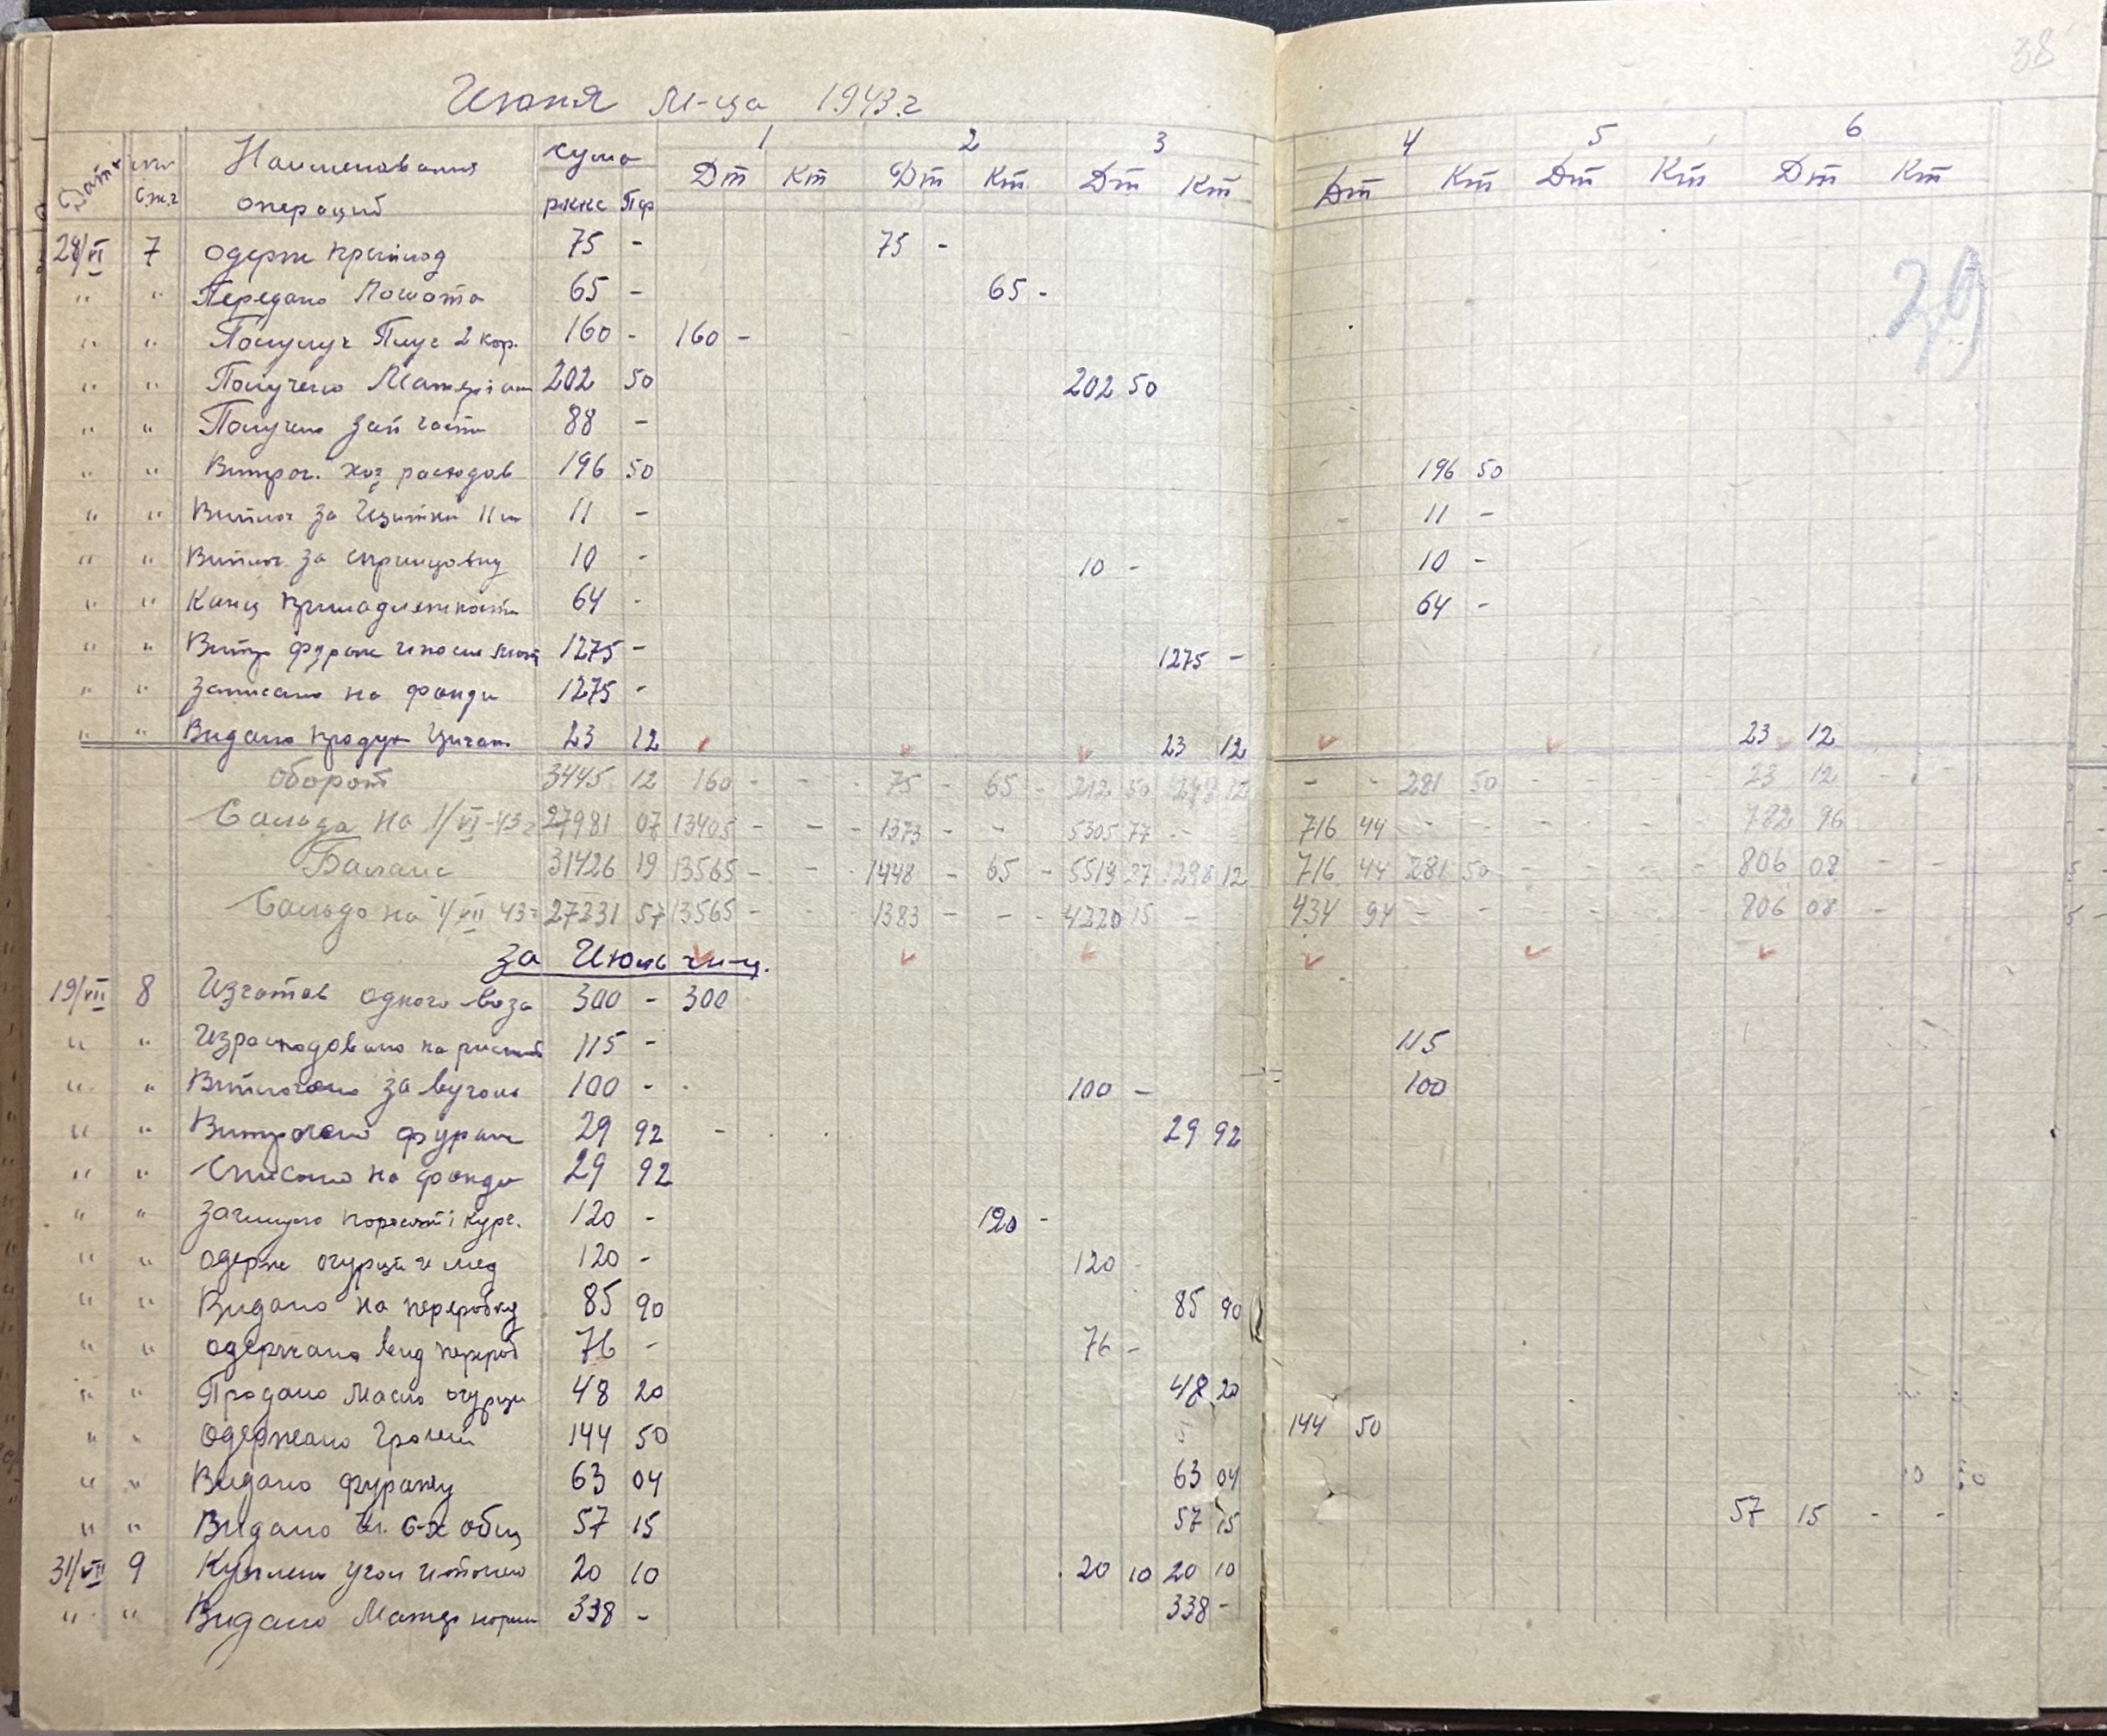 38
Июня М-ца 1943 г
Дата №№ Наименования сума 1 2 3 4 5 6
С.т.г операций рккс Пф Дт Кт Дт Кт Дт Кт Дт Кт Дт Кт Дт Кт
28/VI 7 одерж 75 - 75 -
" " Передано Лошата 65 - 65 -
39
" " Плуг 2 кор. 160 - 160 -
" " Получено 202 50 202 50
" " Получено зап части 88 -
" " Витрач. хоз росходов 196 50 196 50
" " за 11 - 11 -
" " за 10 - 10 - 10 -
" " Канц принадлежности 64 - 64 -
" " фураж 1275 - 1275 -
" " Записано на фонди 1275 -
" " Видано продук 23 12 23 12 23 12
оборот 3445 12 160 - - - 75 - 65 - 212 50 - - 281 50 - - - - 23 12 -
Сальдо на 1/VI-43 г 27981 07 13405 - - - 1373 - - 5305 77 - - 716 44 - - - - - - 782 96
Баланс 31426 19 13565 - - - 1448 - 65 - 5519 27 1298 12 716 44 281 50 - - - - 806 08 - - 5 -
Сальдо на 1/VII 43 г 27231 57 13565 - - - 1383 - - - 4220 15 - 434 94 - - - - - - 806 08 - 5 -
за Июль м-ц.
19/VII 8 Изготов одного воза 300 - 300
" " Израсходовано на 115 - 115
" " Виплочено за вуголь 100 - 100 - 100
" " Витрочено фураж 29 92 - 29 92
" " Списано на фонди 29 92
" " 120 - 120 -
" " одерж огурци и мед 120 - 120 -
" " Видано на переробку 85 90 85 90
" " одержано вид перероб 76 - 76 -
" " Продано Масло огурци 48 20 48 20
" " одержано Грошей 144 50 144 50
" " Видано фуражу 63 04 63 04
" " Видано с-х общ 57 15 57 15 57 15 - -
31/VII 9 20 10 20 10 20 10
" " Видано 338 - 338 -